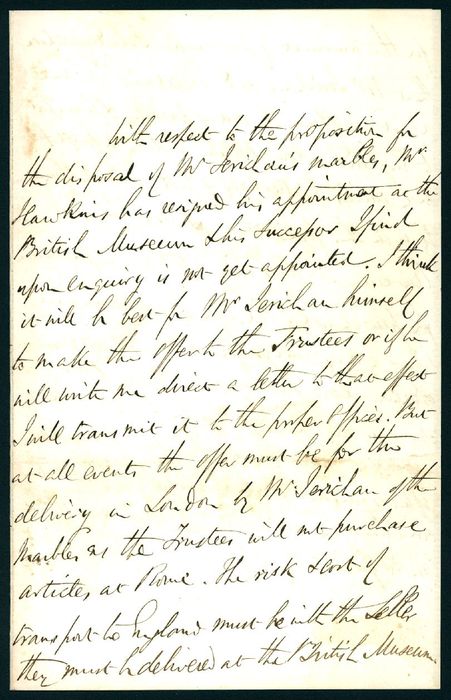 With respect to the proposition for
the disposal of Mr Jerichau's marbles, Mr
Hawkins has resigned his appointment at the
British Museum & his successor I find
upon enquiry is not yet appointed. I think
it will be best for Mr Jerichau himself
to make the offer to the Trustees or if he
will write me direct a letter to that effect
I will transmit it to the proper offices. But
at all events the offer must be for the
delivery in London by Mr Jerichau of the
Marbles as the Trustees will not purchase
articles at Rome. The risk & cost of
transport to England must be with the Seller
they must be delivered at the British Museum